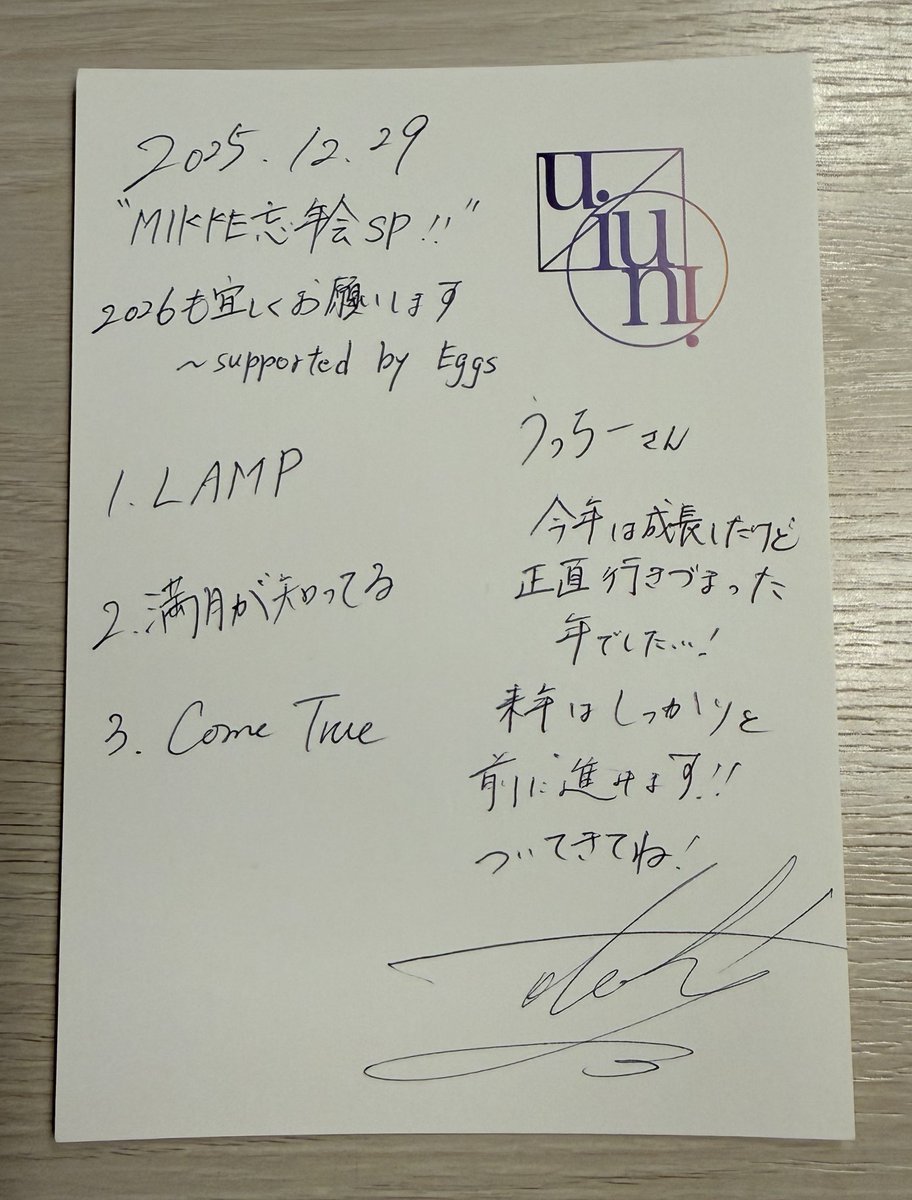 2025.12.29
"MIKKE忘年会SP!!"
2026も宜しくお願いします
~supported by Eggs
1. LAMP
2. 満月が知ってる
3. Come True
u.
iu
ni.
うっちーさん
今年は成長したけど
正直行きづまった
年でした…!
来年はしっかりと
前に進みます!!
ついてきてね!